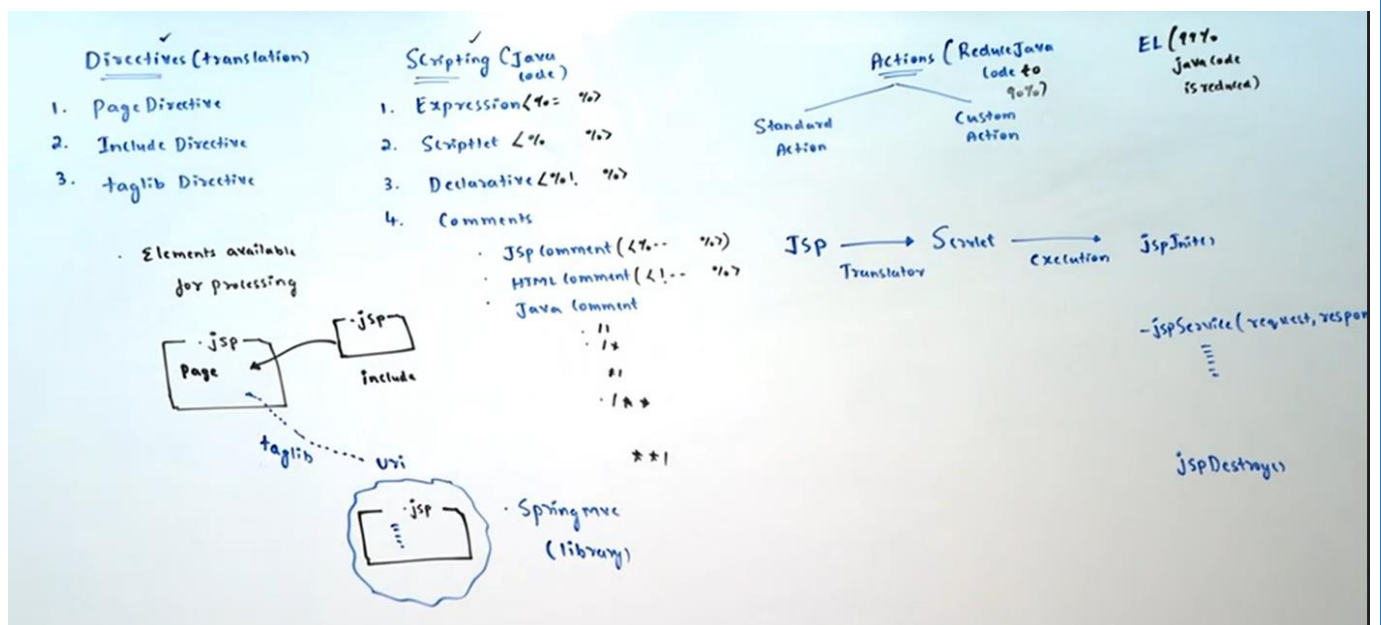 Directives (translation)
1. Page Directive
2. Include Directive
3. taglib Directive
. Elements available
for processing
.jsp
Page
.jsp
include
taglib
uri
.jsp
. Spring mvc
(library)
Scripting (Java
code)
1. Expression <%= %>
2. Scriptlet <% %>
3. Declarative <%! %>
4. Comments
. JSp Comment (<%-- %>)
. HTML Comment (<!-- %>
. Java Comment
. //
. /*
*/
. /**
**/
Actions (Reduce Java
code to
90%)
Standard
Action
Custom
Action
EL (99%
java code
is reduced)
JSP
Translator
Servlet
Execution
jspInit()
-jspService(request, respon
jspDestroy()